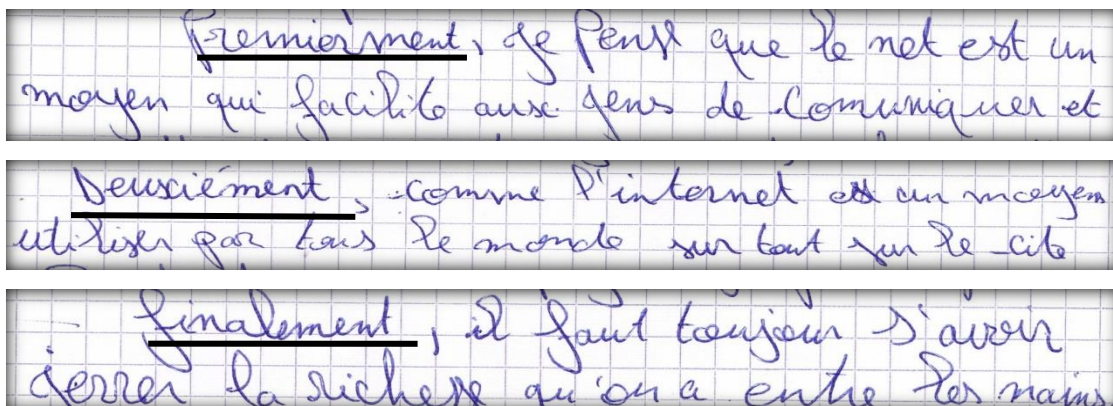 Premièrment, je pense que le net est un
moyen qui facilite aux gens de comuniquer et
Deuxciément, comme l'internet est un moyen
utiliser par tous le monde sur tout sur le cite
finalement, il faut toujour s'avoir
gerrer la richesse qu'on a entre les mains